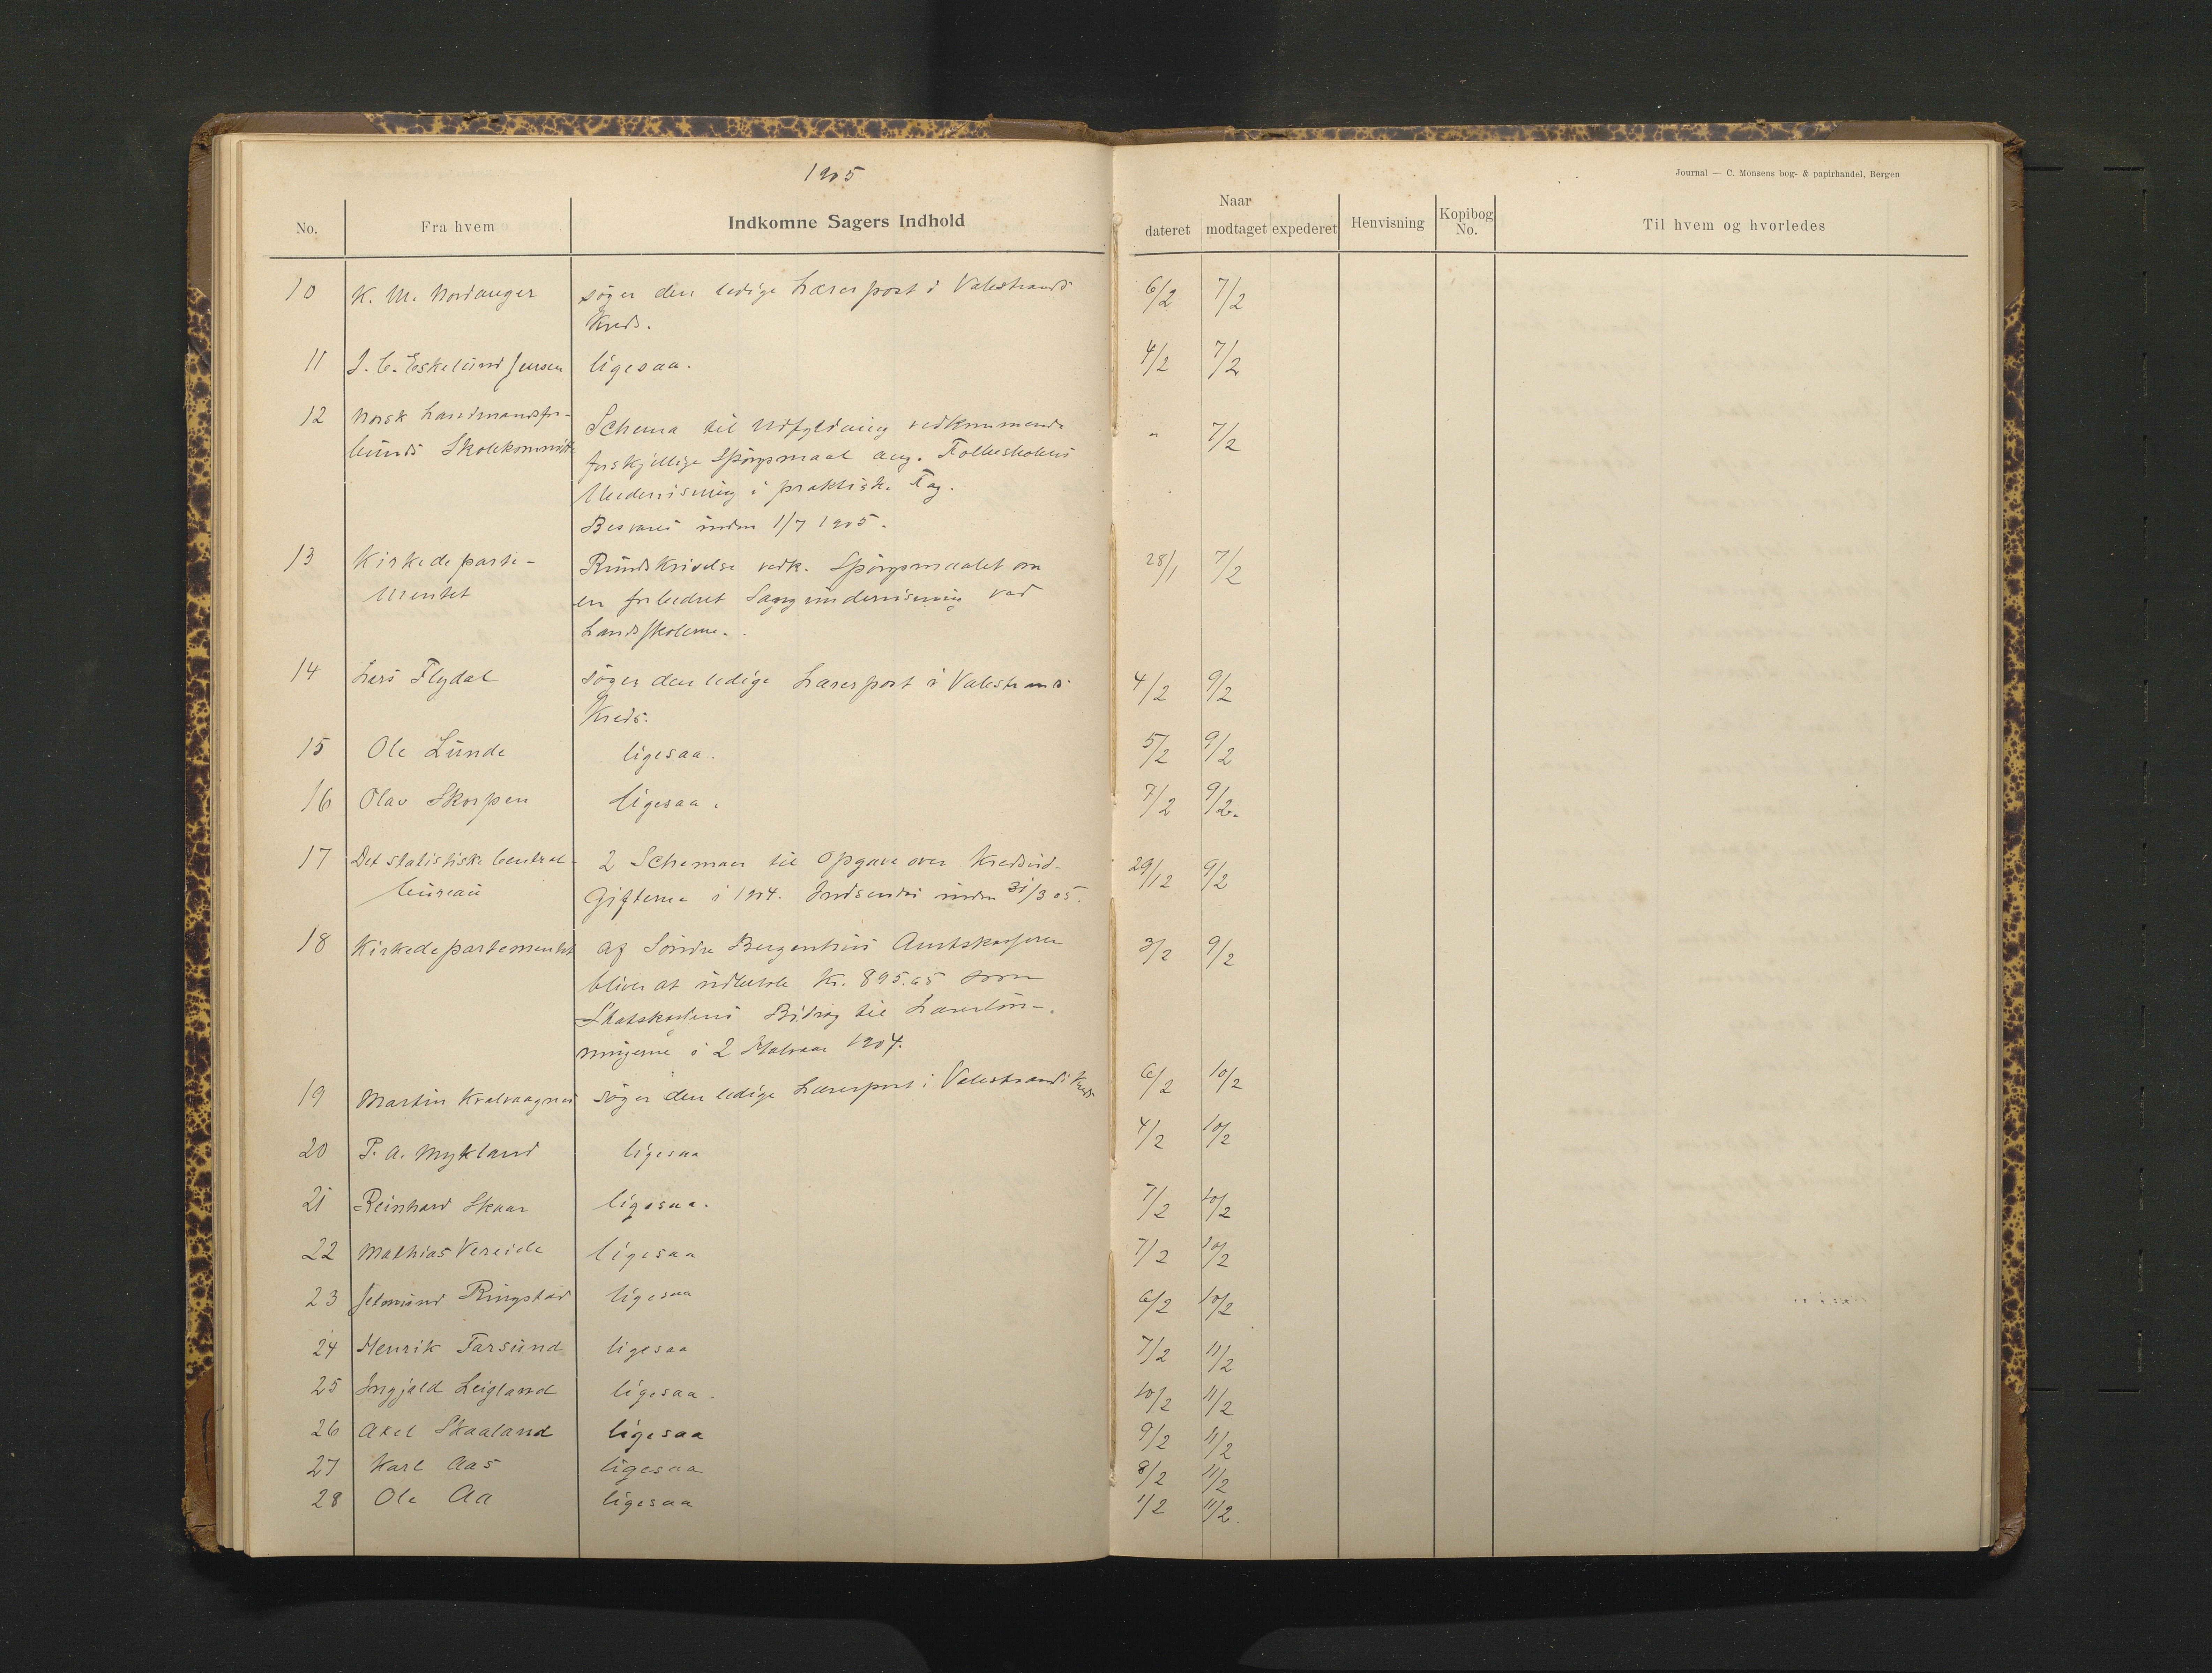 1905
Journal — C. Monsens bog- & papirhandel, Bergen
No. Fra hvem Indkomne Sagers Indhold Naar dateret modtaget expederet Henvisning Kopibog No. Til hvem og hvorledes
10 K. M. Nordanger søger den ledige Lærerpost i Valestrands 6/2 7/2
Kreds.
11 J. C. Eskelund Jensen ligesaa. 4/2 7/2
12 Norsk Landmandsfor-
bunds Skolekommitte Schema til Udfyldning vedkommende " 7/2
forskjellige Spørgsmaal ang. Folkeskolens
Undervisning i praktiske Fag.
Besvares inden 1/7 1905.
13 Kirkedeparte- Rundskrivelse vedk. Spørgsmaalet om 28/1 7/2
mentet en forbedret Sangundervisning ved
Landsskolerne.
14 Lars Flydal søger den ledige Lærerpost i Valestrands 4/2 9/2
Kreds.
15 Ole Lunde ligesaa. 5/2 9/2
16 Olav Skorpen ligesaa. 7/2 9/2.
17 Det statistiske Central- 2 Schemaer til Opgave over Kredsud- 29/12 9/2
bureau Gifterne i 1904. Indsendes inden 31/3 05.
18 Kirkedepartementet af Søndre Bergenhus Amtskasserer 3/2 9/2
bliver at udbetale Kr. 895.65 som
Skatskassens Bidrag til Lærerløn-
ningerne i 2 Halvaar 1904.
19 Martin Kvalvaagnes søger den ledige Lærerpost i Valestrands Kreds 6/2 10/2
20 P. A. Mykland ligesaa 4/2 10/2
21 Reinhard Skaar ligesaa. 7/2 10/2
22 Mathias Vereide ligesaa 7/2 10/2
23 Ringstad ligesaa 6/2 10/2
24 Henrik Tarsund ligesaa 7/2 11/2
25 Ingjald Leigland ligesaa. 10/2 11/2
26 Axel Skaaland ligesaa 9/2 11/2
27 Karl Aas ligesaa 8/2 11/2
28 Ole Aa ligesaa 1/2 11/2.